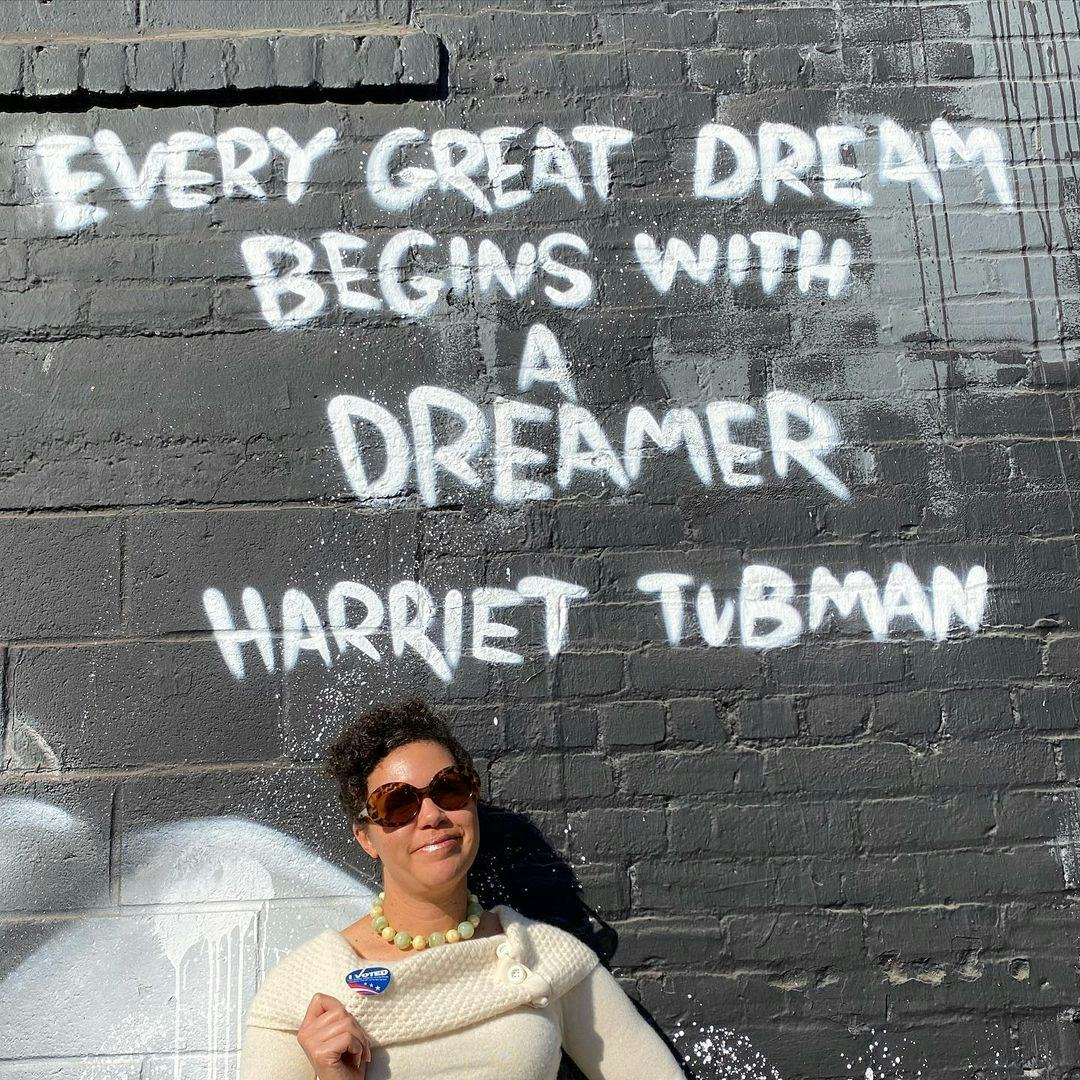 EVERY GREAT DREAM
BEGINS WITH
A
DREAMER
HARRIET TUBMAN
I VOTED